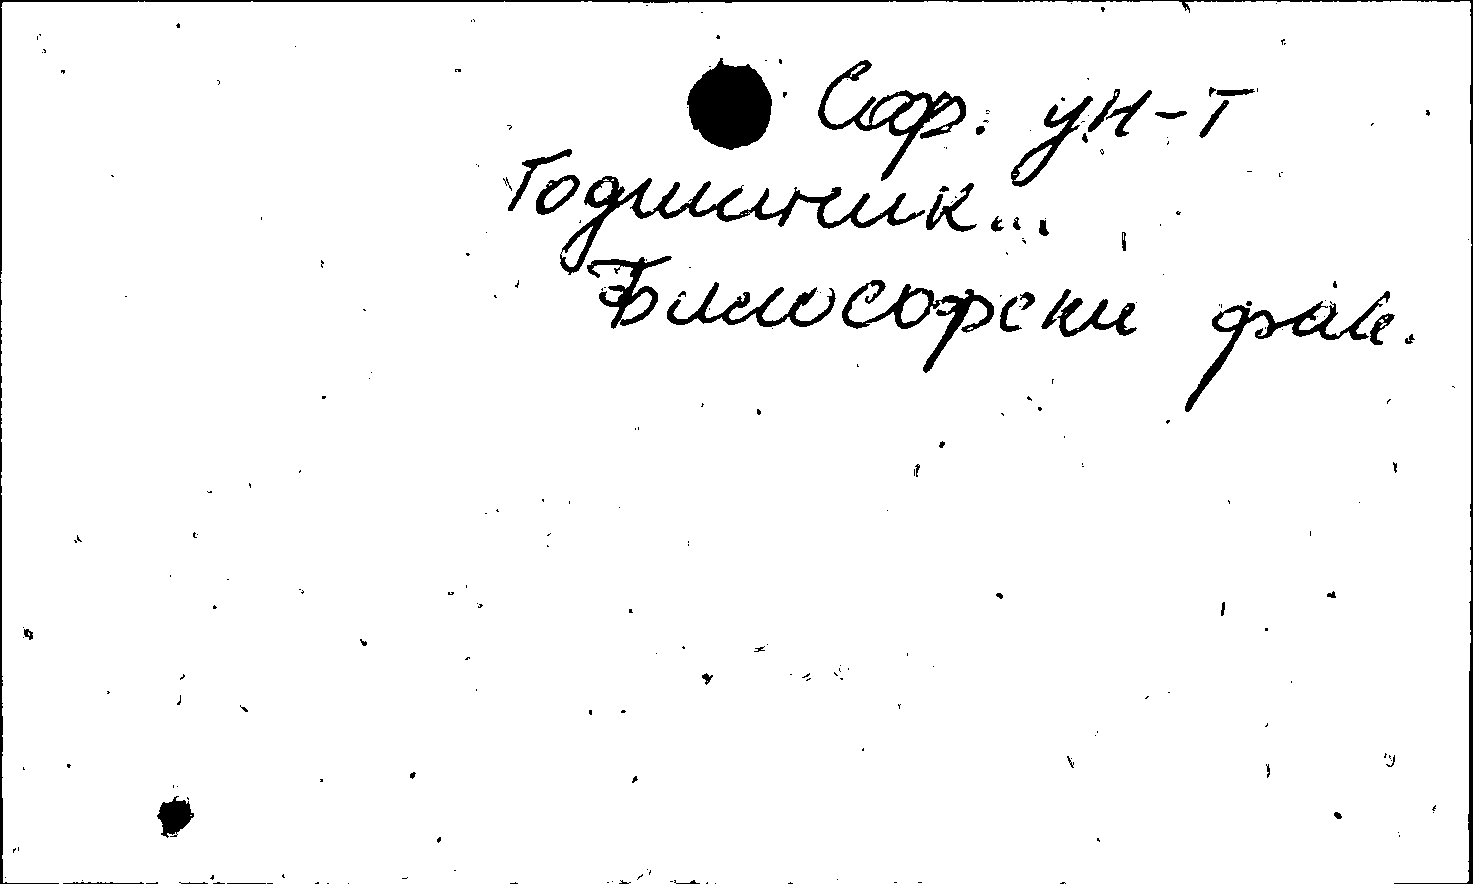 Соф. ун-т
Годишник...
Философски фак.